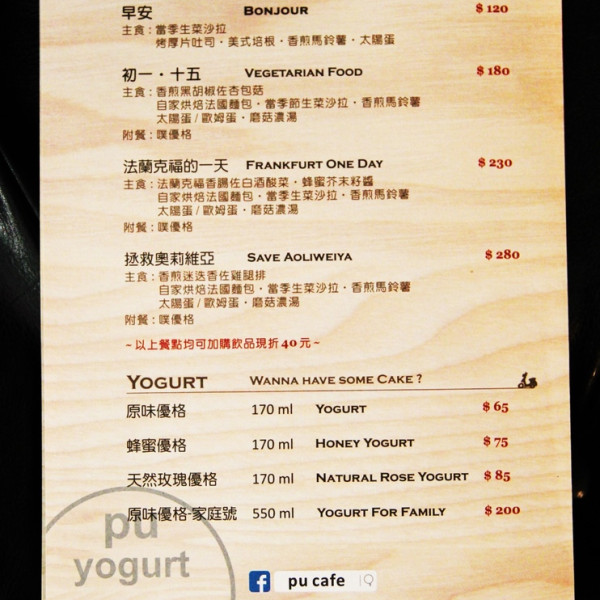 早安 BONJOUR $ 120
主食：當季生菜沙拉
烤厚片吐司・美式培根・香煎馬鈴薯・太陽蛋
初一・十五 VEGETARIAN FOOD $ 180
主食：香煎黑胡椒佐杏包菇
自家烘焙法國麵包・當季節生菜沙拉・香煎馬鈴薯
太陽蛋 / 歐姆蛋・磨菇濃湯
附餐：噗優格
法蘭克福的一天 FRANKFURT ONE DAY $ 230
主食：法蘭克福香腸佐白酒酸菜・蜂蜜芥末籽醬
自家烘焙法國麵包・當季生菜沙拉・香煎馬鈴薯
太陽蛋 / 歐姆蛋・磨菇濃湯
附餐：噗優格
拯救奧莉維亞 SAVE AOLIWEIYA $ 280
主食：香煎迷迭香佐雞腿排
自家烘焙法國麵包・當季生菜沙拉・香煎馬鈴薯
太陽蛋 / 歐姆蛋・磨菇濃湯
附餐：噗優格
~ 以上餐點均可加購飲品現折 40 元 ~
YOGURT WANNA HAVE SOME CAKE ?
原味優格 170 ml YOGURT $ 65
蜂蜜優格 170 ml HONEY YOGURT $ 75
天然玫瑰優格 170 ml NATURAL ROSE YOGURT $ 85
原味優格-家庭號 550 ml YOGURT FOR FAMILY $ 200
pu
yogurt
f pu cafe